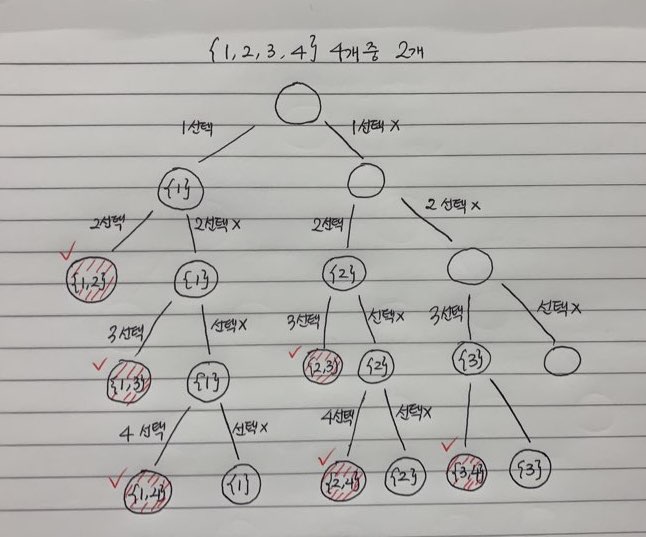 {1,2,3,4} 4개중 2개
1선택 1선택 x
{1}
2선택 2선택x 2선택 2 선택x
{1,2} {1} {2}
3선택 선택x 3선택 선택x 3선택 선택x
{1,3} {1} {2,3} {2} {3}
4 선택 선택x 4선택 선택x
{1,4} {1} {2,4} {2} {3,4} {3}